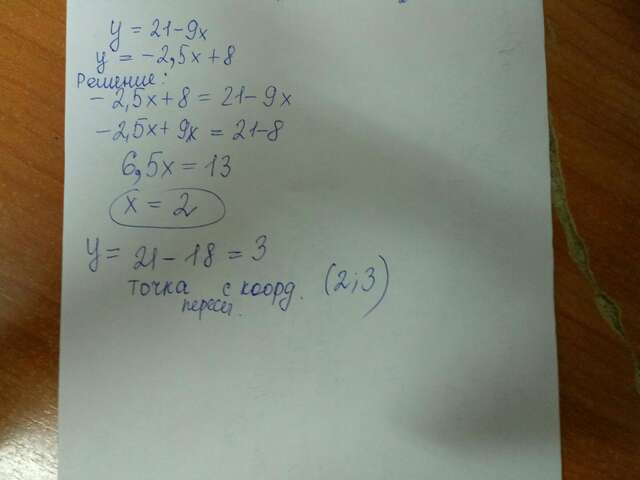 y = 21-9x
y = -2,5x+8
Решение:
-2,5x+8 = 21-9x
-2,5x+9x = 21-8
6,5x = 13
x = 2
y = 21-18 = 3
точка с коорд. (2;3)
пересеч.